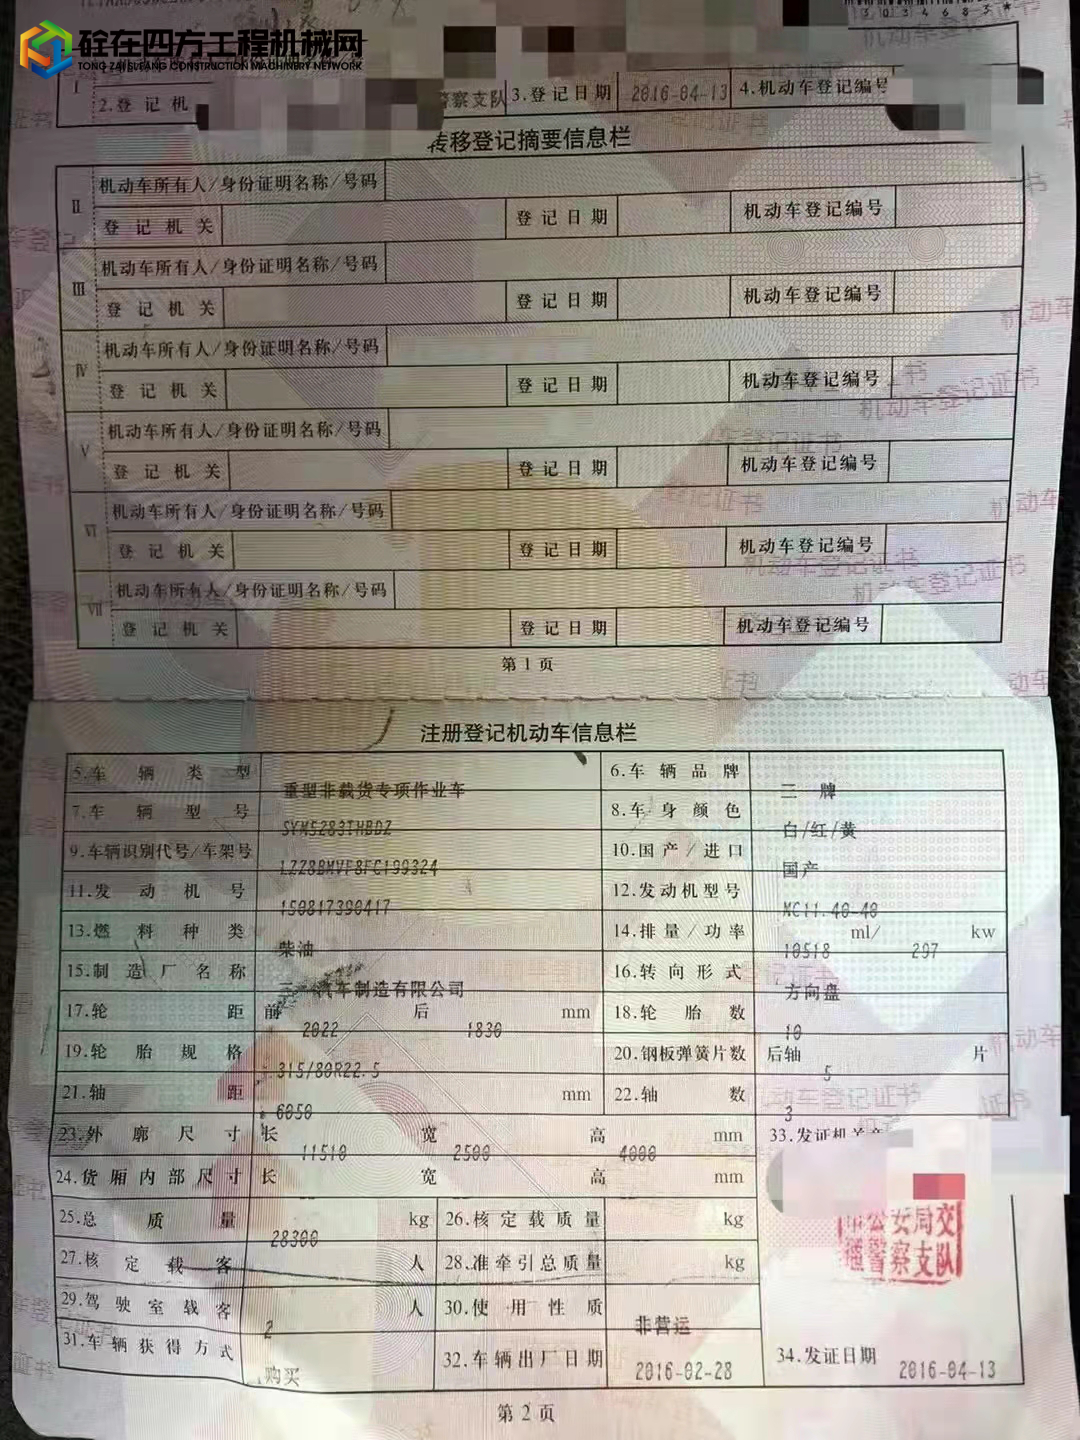 砼在四方工程机械网
TONG ZAI SIFANG CONSTRUCTION MACHINERY NETWORK
I
2.登记机 警察支队 3.登记日期 2016-04-13 4.机动车登记编号
转移登记摘要信息栏
II 机动车所有人/身份证明名称/号码
登记机关 登记日期 机动车登记编号
III 机动车所有人/身份证明名称/号码
登记机关 登记日期 机动车登记编号
IV 机动车所有人/身份证明名称/号码
登记机关 登记日期 机动车登记编号
V 机动车所有人/身份证明名称/号码
登记机关 登记日期 机动车登记编号
VI 机动车所有人/身份证明名称/号码
登记机关 登记日期 机动车登记编号
VII 机动车所有人/身份证明名称/号码
登记机关 登记日期 机动车登记编号
第1页
注册登记机动车信息栏
5.车辆类型 重型非载货专项作业车 6.车辆品牌 三 牌
7.车辆型号 SYM5283THBDZ 8.车身颜色 白/红/黄
9.车辆识别代号/车架号 LZZ8BMVF8FC199324 10.国产/进口 国产
11.发动机号 150817390417 12.发动机型号 MC11.40-40
13.燃料种类 柴油 14.排量/功率 10518 ml/ 297 kw
15.制造厂名称 三 汽车制造有限公司 16.转向形式 方向盘
17.轮距 前 2022 后 1830 mm 18.轮胎数 10
19.轮胎规格 315/80R22.5 20.钢板弹簧片数 后轴 5 片
21.轴距 6050 mm 22.轴数 3
23.外廓尺寸 长 11510 宽 2500 高 4000 mm 33.发证机关
24.货厢内部尺寸 长 宽 高 mm
25.总质量 28300 kg 26.核定载质量 kg
市公安局交
通警察支队
27.核定载客 人 28.准牵引总质量 kg
29.驾驶室载客 2 人 30.使用性质 非营运
31.车辆获得方式 购买 32.车辆出厂日期 2016-02-28 34.发证日期 2016-04-13
第2页